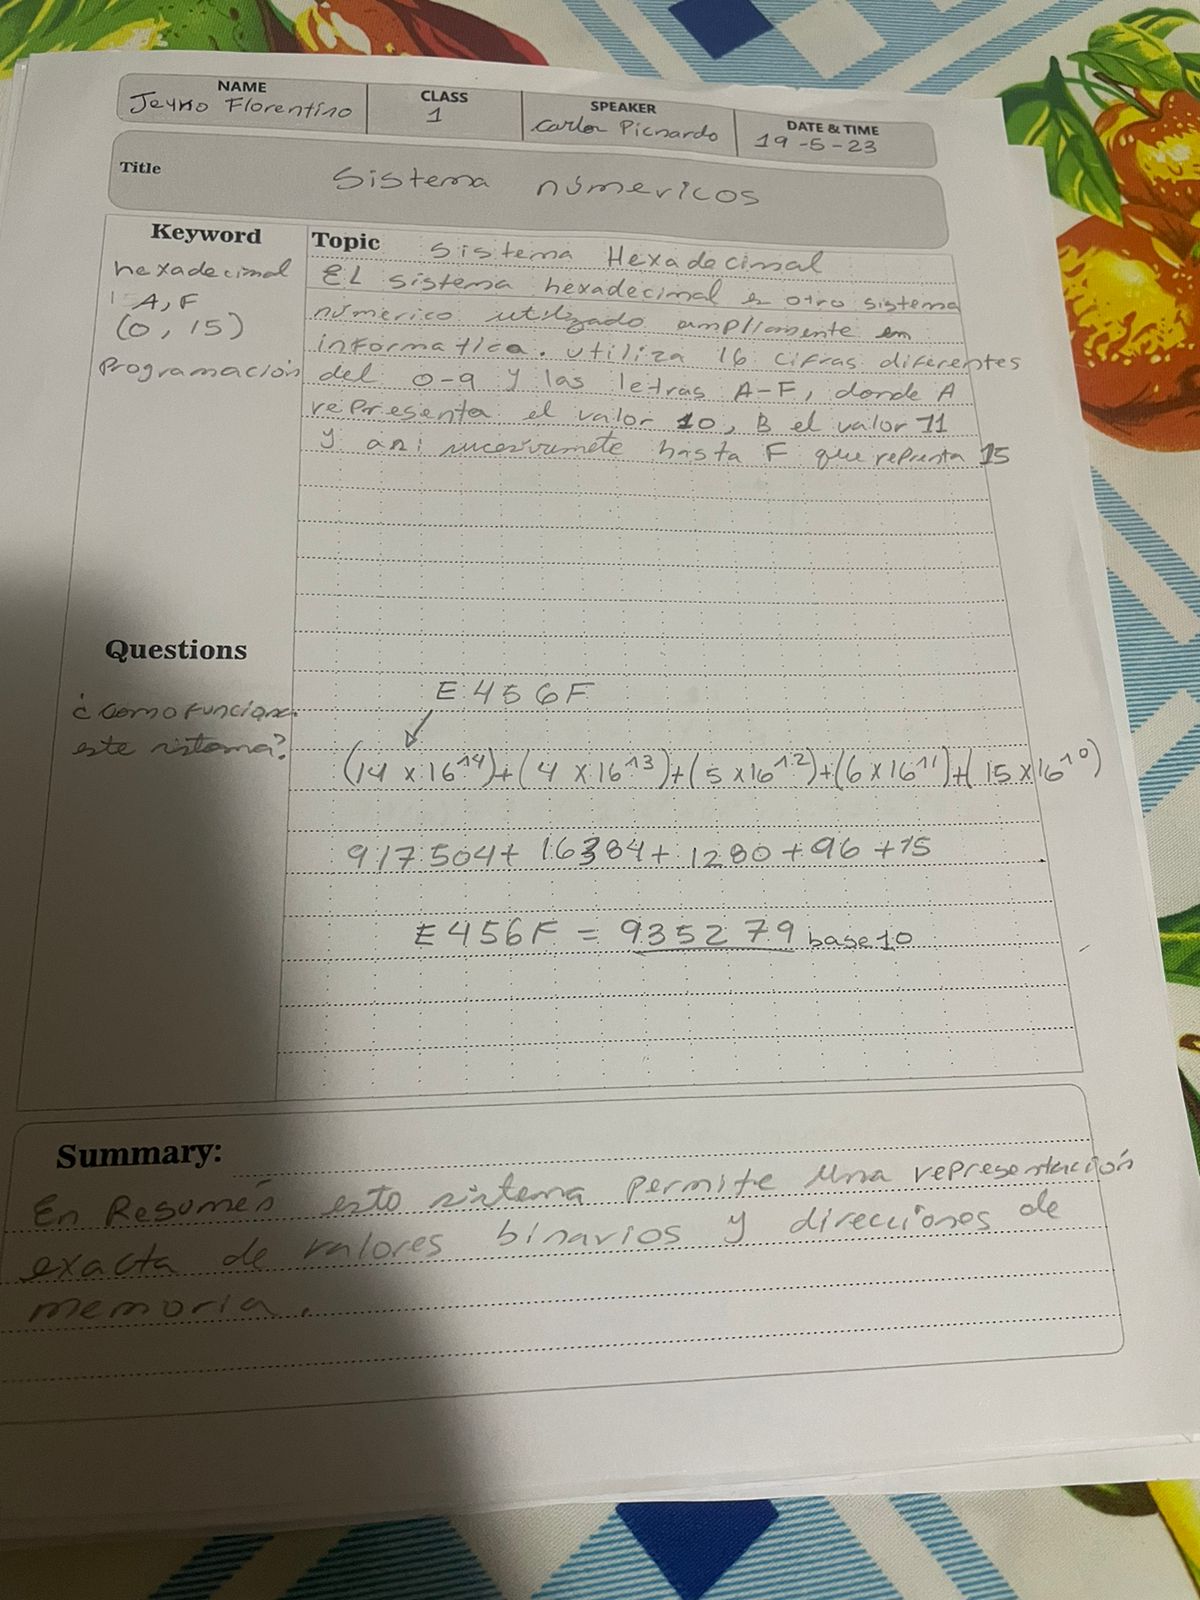 NAME
Jeyko Florentino
CLASS
1
SPEAKER
Carlos Picnardo
DATE & TIME
19-5-23
Title
Sistema númericos
Keyword
hexadecimal
A, F
(0, 15)
Programación
Topic Sistema Hexadecimal
EL sistema hexadecimal es otro sistema
númerico utilizado ampliamente en
informatica. utiliza 16 cifras diferentes
del 0-9 y las letras A-F, donde A
representa el valor 10, B el valor 11
y asi sucesivamete hasta F que reprenta 15
Questions
¿como funciona
este sistema?
E456F
(14 x 16^4)+(4 x 16^3)+(5 x 16^2)+(6 x 16^1)+(15 x 16^0)
917504+ 16384+ 1280 +96 +15
E456F = 935279 base 10
Summary:
En Resumen esto sistema permite una representación
exacta de valores binarios y direcciones de
memoria.